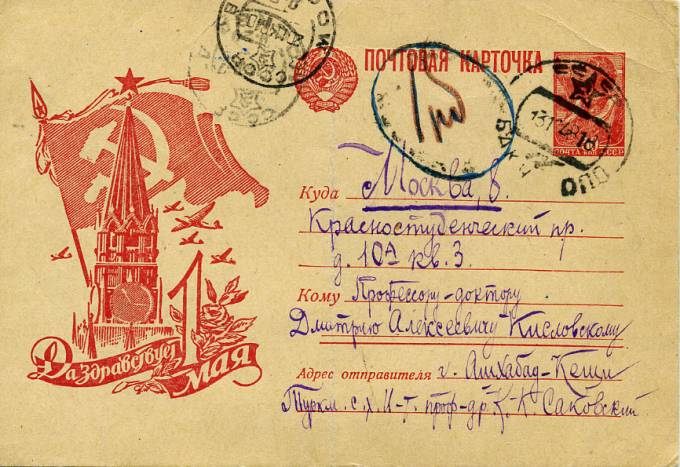 ПОЧТОВАЯ КАРТОЧКА
ПОЧТА СССР
Да здравствует
1 МАЯ
Куда Москва, 8.
Красностуденческий пр.
д. 10А кв. 3.
Кому Профессору-доктору
Дмитрию Алексеевичу Кисловскому
Адрес отправителя г. Ашхабад-Кеши
Туркм. с.х. И-т. проф-др. К. К. Саковский